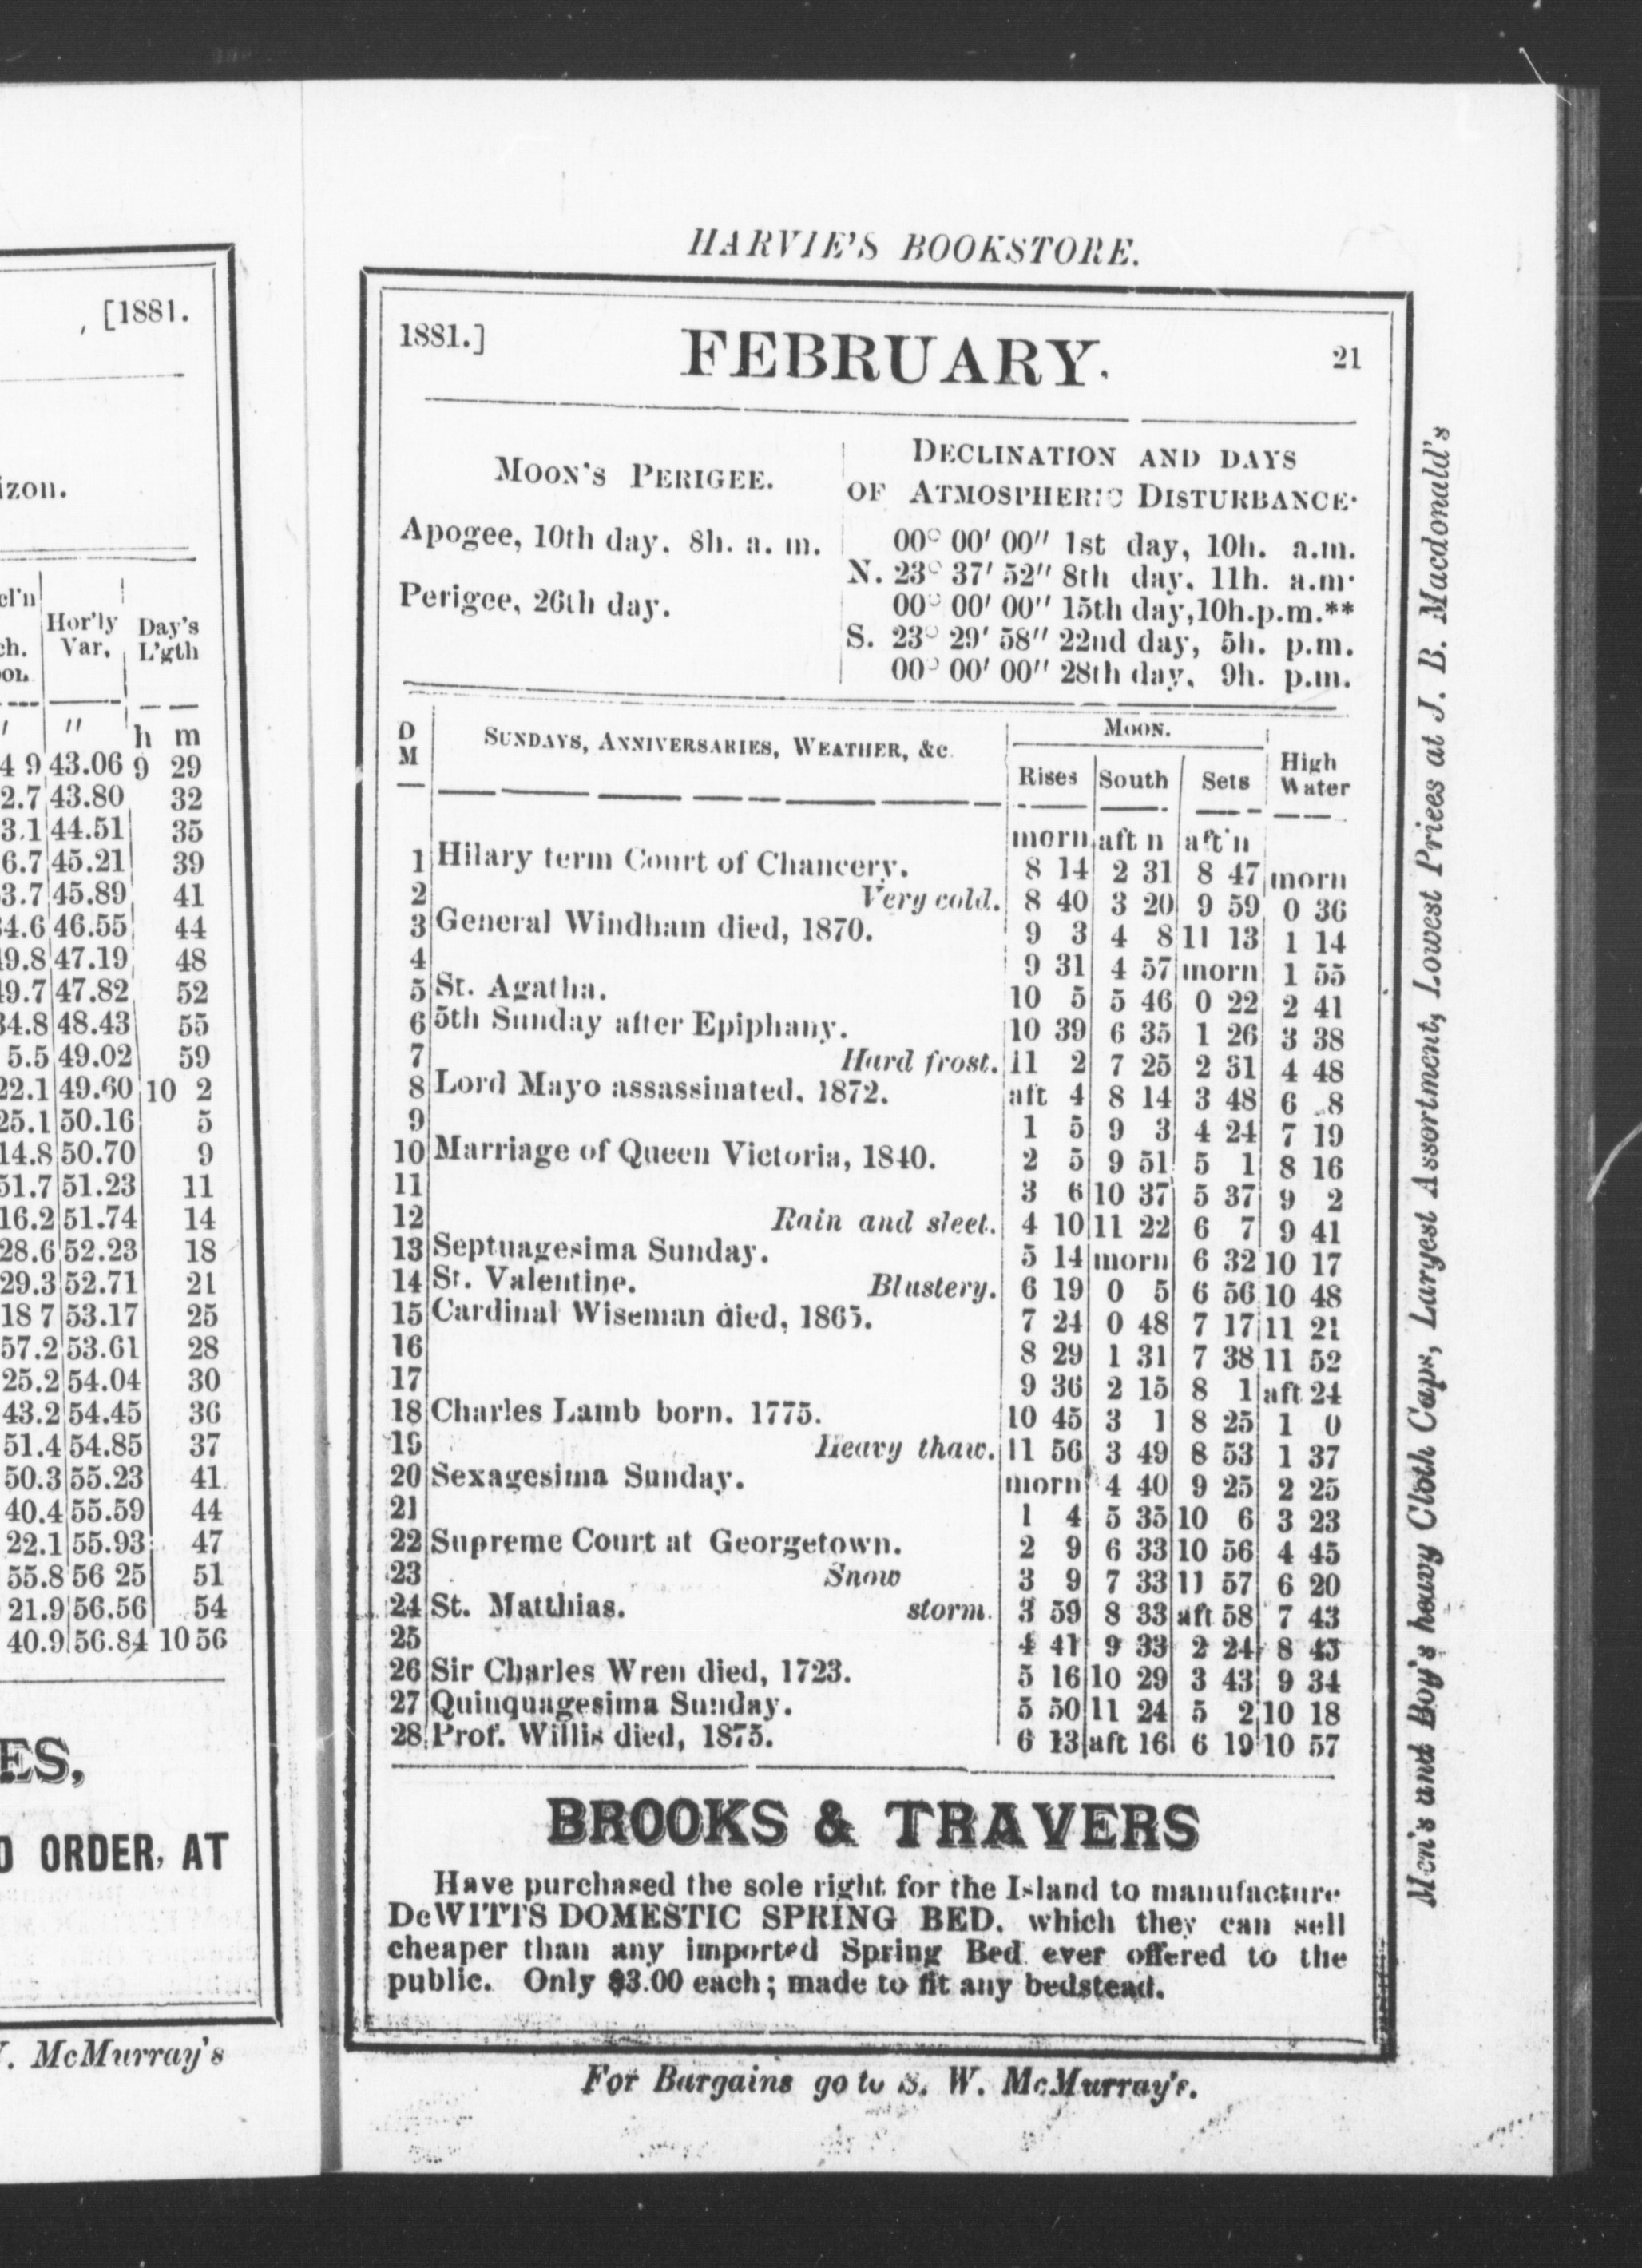 [1881.
izon.
cl'n
ch.
Hor'ly
Var.
Day's
L'gth
" h m
4 9 43.06 9 29
2.7 43.80 32
3.1 44.51 35
6.7 45.21 39
3.7 45.89 41
34.6 46.55 44
19.8 47.19 48
19.7 47.82 52
34.8 48.43 55
5.5 49.02 59
22.1 49.60 10 2
25.1 50.16 5
14.8 50.70 9
51.7 51.23 11
16.2 51.74 14
28.6 52.23 18
29.3 52.71 21
18 7 53.17 25
57.2 53.61 28
25.2 54.04 30
43.2 54.45 36
51.4 54.85 37
50.3 55.23 41
40.4 55.59 44
22.1 55.93 47
55.8 56 25 51
21.9 56.56 54
40.9 56.84 10 56
ES,
O ORDER, AT
W. McMurray's
HARVIE'S BOOKSTORE.
1881.] FEBRUARY. 21
MOON'S PERIGEE.
Apogee, 10th day, 8h. a. m.
Perigee, 26th day.
DECLINATION AND DAYS
OF ATMOSPHERIC DISTURBANCE.
00° 00' 00" 1st day, 10h. a.m.
N. 23° 37' 52" 8th day, 11h. a.m.
00° 00' 00" 15th day, 10h.p.m.**
S. 23° 29' 58" 22nd day, 5h. p.m.
00° 00' 00" 28th day, 9h. p.m.
D
M
SUNDAYS, ANNIVERSARIES, WEATHER, &c.
MOON.
Rises South Sets High
Water
morn aft n aft'n
1 Hilary term Court of Chancery. 8 14 2 31 8 47 morn
2 Very cold. 8 40 3 20 9 59 0 36
3 General Windham died, 1870. 9 3 4 8 11 13 1 14
4 9 31 4 57 morn 1 55
5 St. Agatha. 10 5 5 46 0 22 2 41
6 5th Sunday after Epiphany. 10 39 6 35 1 26 3 38
7 Hard frost. 11 2 7 25 2 31 4 48
8 Lord Mayo assassinated, 1872. aft 4 8 14 3 48 6 8
9 1 5 9 3 4 24 7 19
10 Marriage of Queen Victoria, 1840. 2 5 9 51 5 1 8 16
11 3 6 10 37 5 37 9 2
12 Rain and sleet. 4 10 11 22 6 7 9 41
13 Septuagesima Sunday. 5 14 morn 6 32 10 17
14 St. Valentine. Blustery. 6 19 0 5 6 56 10 48
15 Cardinal Wiseman died, 1865. 7 24 0 48 7 17 11 21
16 8 29 1 31 7 38 11 52
17 9 36 2 15 8 1 aft 24
18 Charles Lamb born, 1775. 10 45 3 1 8 25 1 0
19 Heavy thaw. 11 56 3 49 8 53 1 37
20 Sexagesima Sunday. morn 4 40 9 25 2 25
21 1 4 5 35 10 6 3 23
22 Supreme Court at Georgetown. 2 9 6 33 10 56 4 45
23 Snow 3 9 7 33 11 57 6 20
24 St. Matthias. storm. 3 59 8 33 aft 58 7 43
25 4 41 9 33 2 24 8 43
26 Sir Charles Wren died, 1723. 5 16 10 29 3 43 9 34
27 Quinquagesima Sunday. 5 50 11 24 5 2 10 18
28 Prof. Willis died, 1875. 6 13 aft 16 6 19 10 57
BROOKS & TRAVERS
Have purchased the sole right for the Island to manufacture
DeWITTS DOMESTIC SPRING BED, which they can sell
cheaper than any imported Spring Bed ever offered to the
public. Only $3.00 each; made to fit any bedstead.
For Bargains go to S. W. McMurray's.
Men's and Boy's heavy Cloth Caps, Largest Assortment, Lowest Prices at J. B. Macdonald's